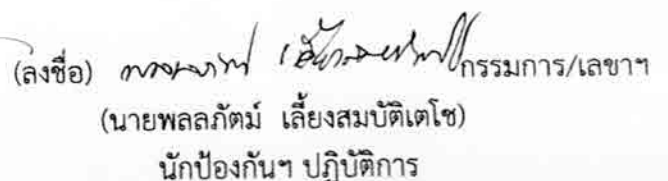 (ลงชื่อ) กรรมการ/เลขาฯ
(นายพลลภัตม์ เลี้ยงสมบัติเตโช)
นักป้องกันฯ ปฏิบัติการ